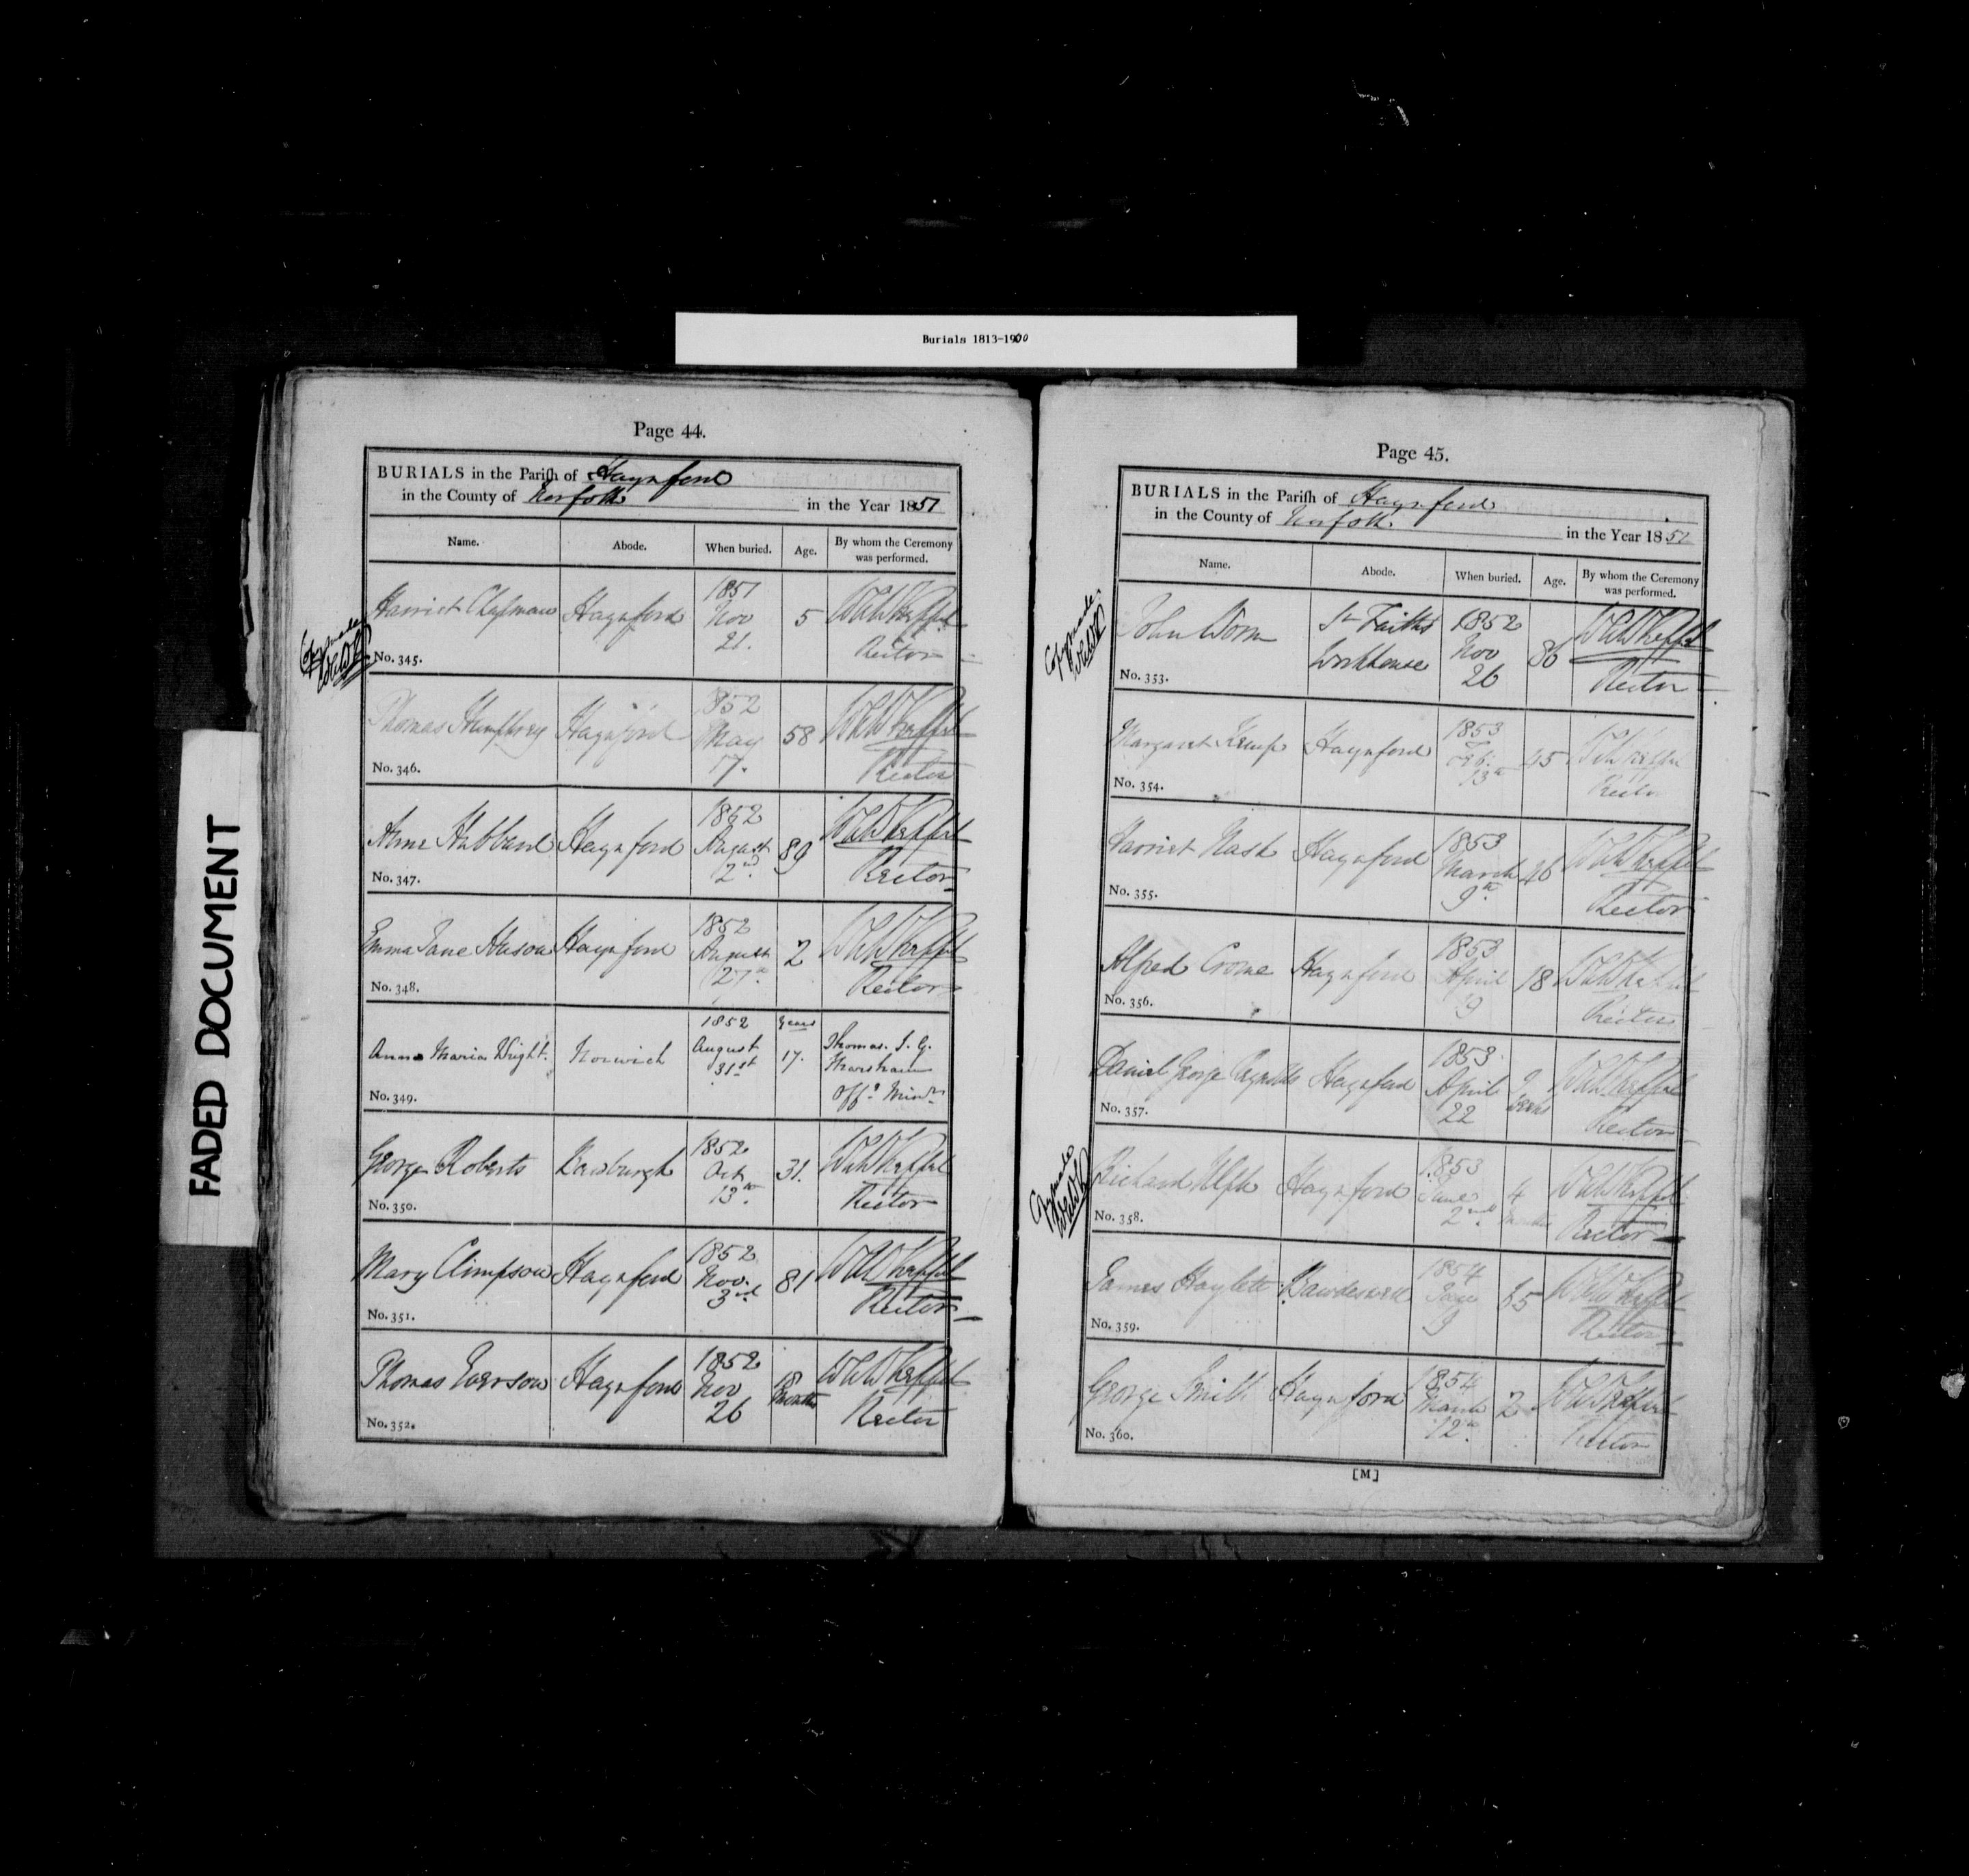 Burials 1813-1900
FADED DOCUMENT
Page 44.
BURIALS in the Parish of Haynford
in the County of Norfolk in the Year 1851
Name. Abode. When buried. Age. By whom the Ceremony was performed.
Copy made
Harriet Chapman Haynford 1851 Nov 21. 5 Rector
No. 345.
Thomas Humphrey Haynford 1852 May 17. 58 Rector
No. 346.
Anne Hubbard Haynford 1852 August 2nd 89 Rector
No. 347.
Emma Jane Haynford 1852 August 27th 2 Rector
No. 348.
Anna Maria Wright. Norwich 1852 August 31st years 17. Thomas. J. G. Marsham Offg. Minr.
No. 349.
George Roberts 1852 Oct 13th 31. Rector
No. 350.
Mary Climpson Haynford 1852 Nov. 3rd 81 Rector
No. 351.
Thomas Everson Haynford 1852 Nov 26 18 Months Rector
No. 352.
Page 45.
BURIALS in the Parish of Haynford
in the County of Norfolk in the Year 1852
Name. Abode. When buried. Age. By whom the Ceremony was performed.
Copy made
John Worn St Faiths Workhouse 1852 Nov 26 86 Rector
No. 353.
Margaret Kemp Haynford 1853 Feb. 13th 45 Rector
No. 354.
Harriet Nash Haynford 1853 March 9th 46 Rector
No. 355.
Alfred Crome Haynford 1853 April 9 18 Rector
No. 356.
Daniel George Reynolds Haynford 1853 April 22 9 weeks Rector
No. 357.
Copy made
Richard Ulph Haynford 1853 June 2nd 4 months Rector
No. 358.
James Haylett Bawdeswell 1854 Jany 9 65 Rector
No. 359.
George Smith Haynford 1854 March 12th 2 Rector
No. 360.
[M]